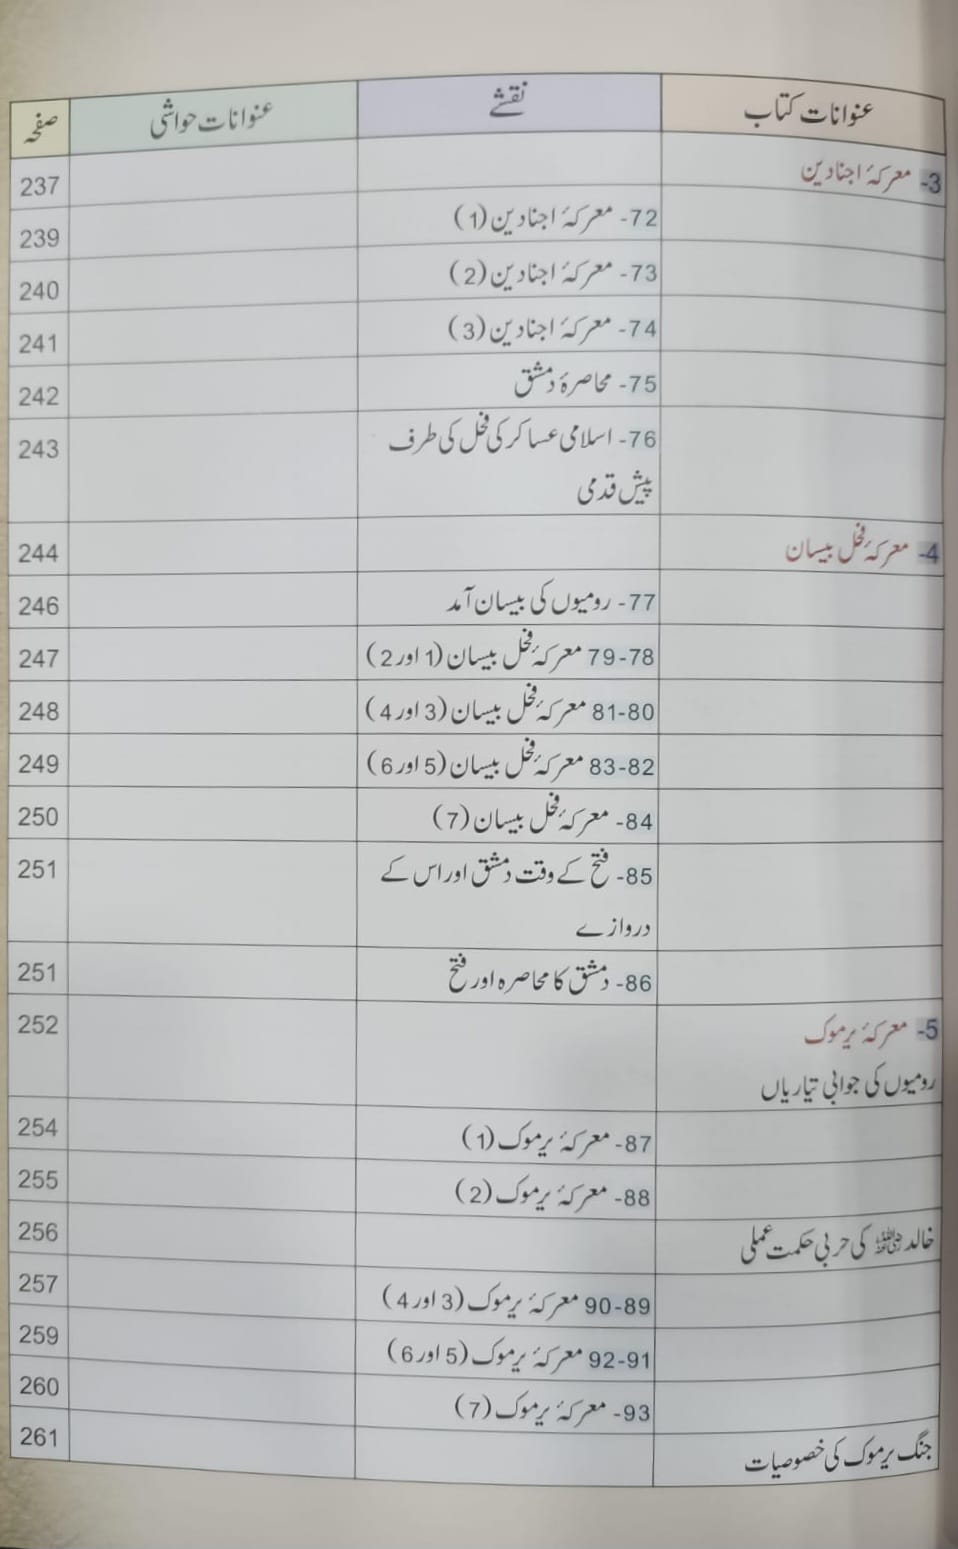 عنوانات کتاب	نقشے	عنوانات حواشی	صفحہ
3- معرکۂ اجنادین			237
	72- معرکۂ اجنادین (1)		239
	73- معرکۂ اجنادین (2)		240
	74- معرکۂ اجنادین (3)		241
	75- محاصرۂ دمشق		242
	76- اسلامی عساکر کی فحل کی طرف		243
	پیش قدمی
4- معرکۂ فحل بیسان			244
	77- رومیوں کی بیسان آمد		246
	78-79 معرکۂ فحل بیسان (1 اور 2)		247
	80-81 معرکۂ فحل بیسان (3 اور 4)		248
	82-83 معرکۂ فحل بیسان (5 اور 6)		249
	84- معرکۂ فحل بیسان (7)		250
	85- فتح کے وقت دمشق اور اس کے		251
	دروازے
	86- دمشق کا محاصرہ اور فتح		251
5- معرکۂ یرموک			252
رومیوں کی جوابی تیاریاں
	87- معرکۂ یرموک (1)		254
	88- معرکۂ یرموک (2)		255
خالد رضی اللہ عنہ کی حربی حکمت عملی			256
	89-90 معرکۂ یرموک (3 اور 4)		257
	91-92 معرکۂ یرموک (5 اور 6)		259
	93- معرکۂ یرموک (7)		260
جنگ یرموک کی خصوصیات			261